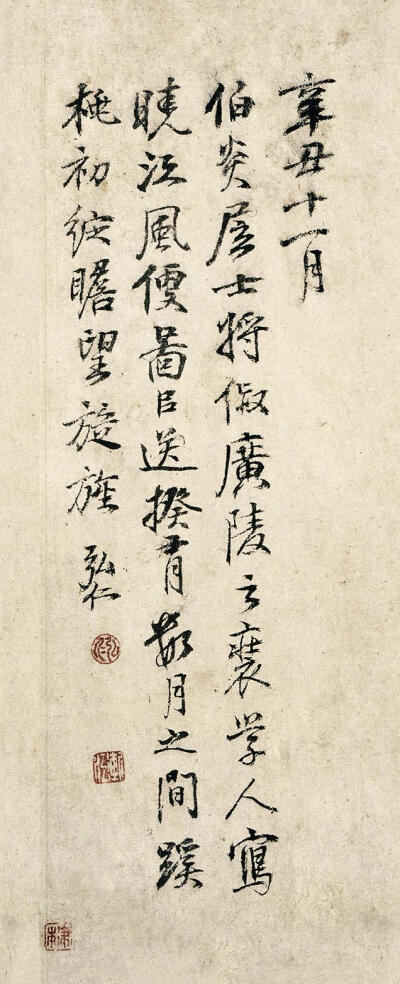 辛丑十一月
伯炎居士將俶廣陵之裝學人寫
曉江風便圖㠯送揆有數月之間蹊
桃初綻瞻望旋旌 弘仁